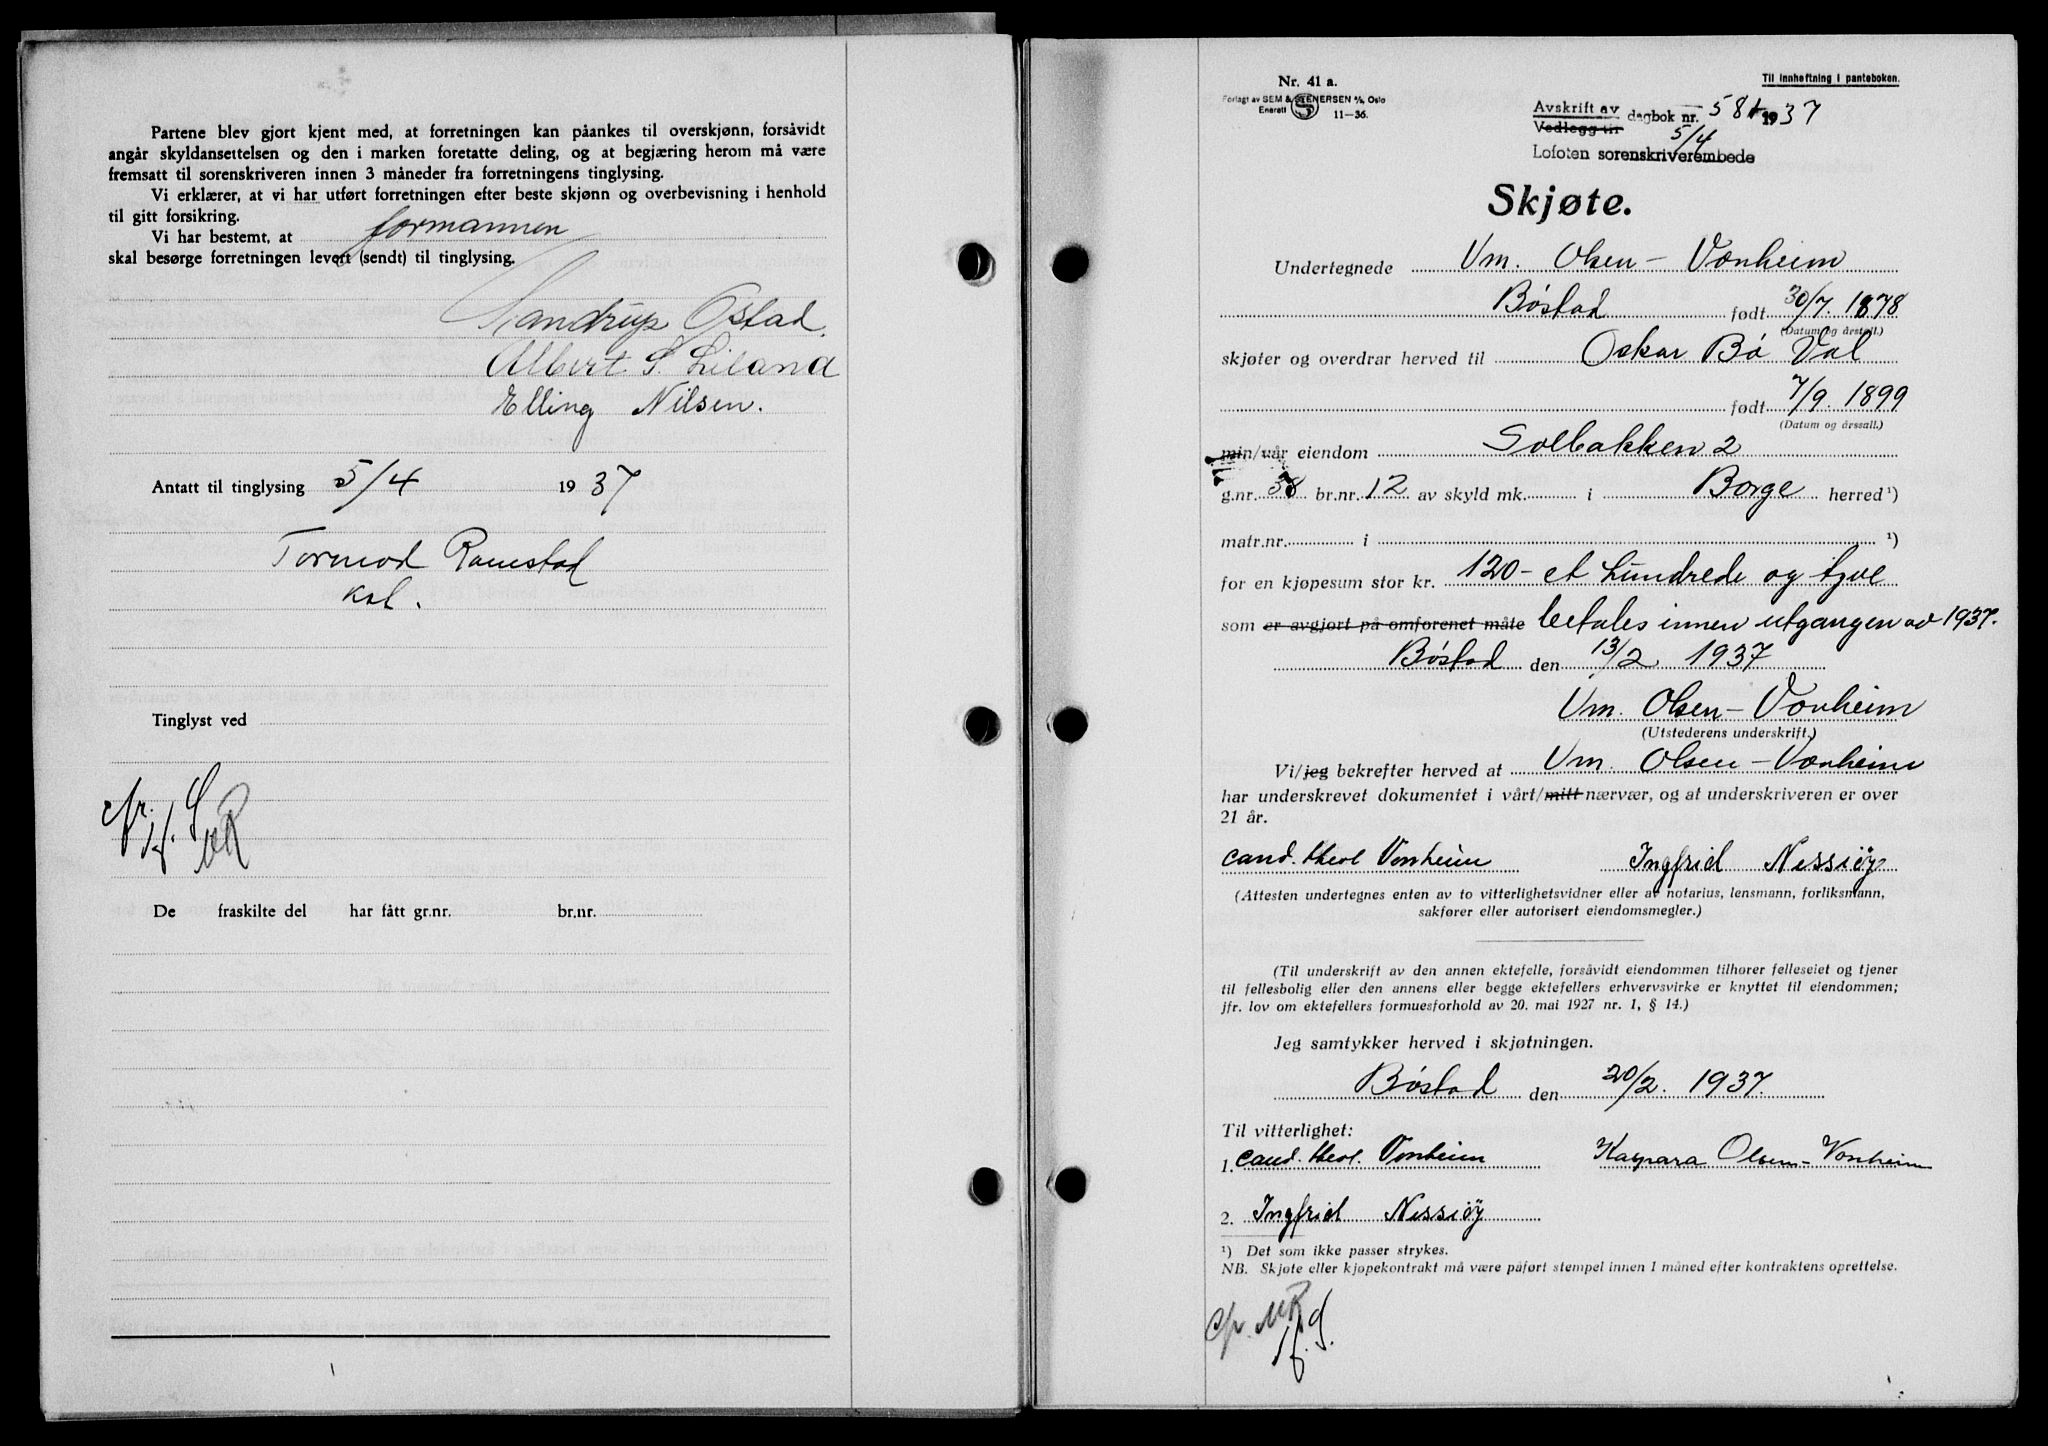 Partene blev gjort kjent med, at forretningen kan påankes til overskjønn, forsåvidt
angår skyldansettelsen og den i marken foretatte deling, og at begjæring herom må være
fremsatt til sorenskriveren innen 3 måneder fra forretningens tinglysing.
Vi erklærer, at vi har utført forretningen efter beste skjønn og overbevisning i henhold
til gitt forsikring.
Vi har bestemt, at formannen
skal besørge forretningen levert (sendt) til tinglysing.
Sandrup Ostad.
Albert S. Liland
Elling Nilsen.
Antatt til tinglysing 5/4 1937
Tormod Ramstad
kst.
Tinglyst ved
De fraskilte del har fått gr.nr. br.nr.
Nr. 41 a.
Forlagt av SEM & STENERSEN A/S, Oslo
Enerett 11—36.
Til innheftning i panteboken.
Avskrift av
Vedlegg til dagbok nr. 581 1937
5/4
Lofoten sorenskriverembede
Skjøte.
Undertegnede Vm. Olsen-Vonheim
Bøstad født 30/7. 1878
(Datum og årstall.)
skjøter og overdrar herved til Oskar Bø Val
født 7/9. 1899
(Datum og årssall.)
min/vår eiendom Solbakken 2
g.nr. 38 br.nr. 12 av skyld mk. i Borge herred ¹)
matr.nr. i ¹)
for en kjøpesum stor kr. 120- et hundrede og tjve
som er avgjort på omforenet måte betales innen utgangen av 1937.
Bøstad den 13/2 1937
Vm. Olsen-Vonheim
(Utstederens underskrift.)
Vi/jeg bekrefter herved at Vm. Olsen-Vonheim
har underskrevet dokumentet i vårt/mitt nærvær, og at underskriveren er over
21 år.
cand. theol Vonheim Ingfrid Nessiøy
(Attesten undertegnes enten av to vitterlighetsvidner eller av notarius, lensmann, forliksmann,
sakfører eller autorisert eiendomsmegler.)
(Til underskrift av den annen ektefelle, forsåvidt eiendommen tilhører felleseiet og tjener
til fellesbolig eller den annens eller begge ektefellers erhvervsvirke er knyttet til eiendommen;
jfr. lov om ektefellers formuesforhold av 20. mai 1927 nr. 1, § 14.)
Jeg samtykker herved i skjøtningen.
Bøstad den 20/2. 1937.
Til vitterlighet:
1. cand. theol. Vonheim Kaspara Olsen-Vonheim
2. Ingfrid Nessiøy
¹) Det som ikke passer strykes.
NB. Skjøte eller kjøpekontrakt må være påført stempel innen 1 måned efter kontraktens oprettelse.